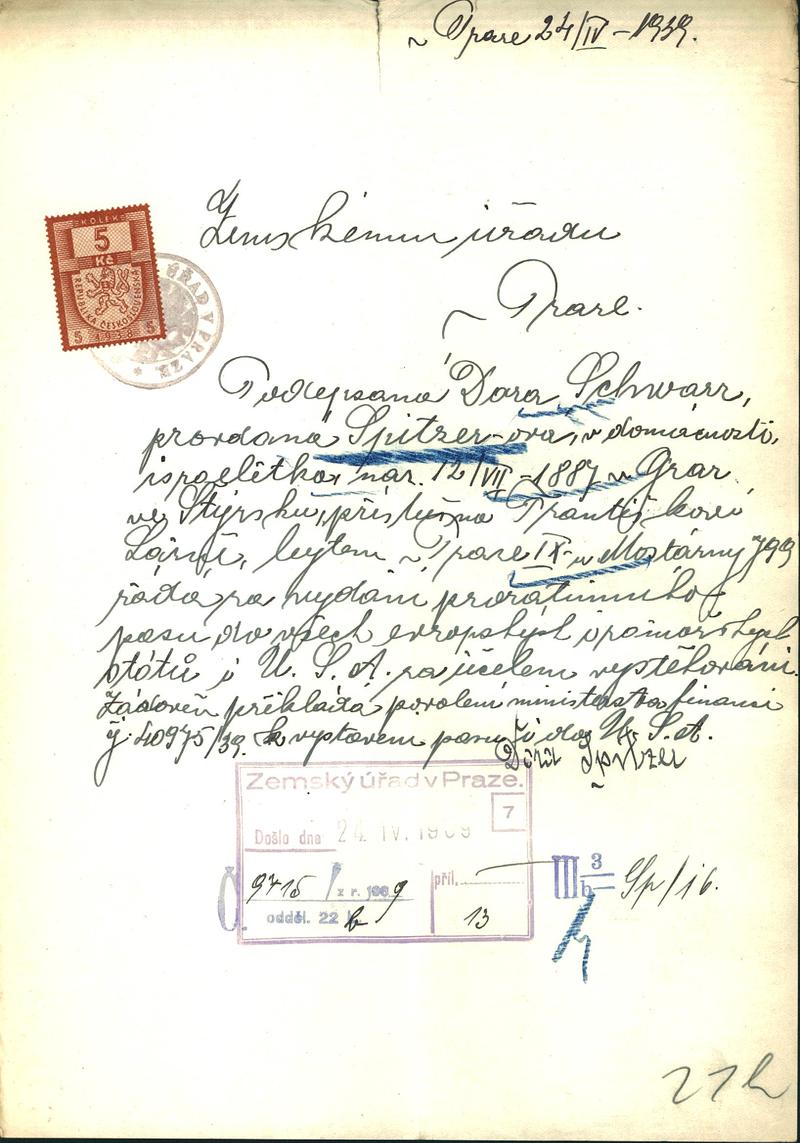 v Praze 24/IV - 1939.
KOLEK
5
Kč
REPUBLIKA ČESKOSLOVENSKÁ
5 1938 5
ÚŘAD V PRAZE
Zemskému úřadu
v Praze.
Podepsaná Dora Schwarz,
provdaná Spitzer-ova, v domácnosti,
israelitka, nar. 12/VII - 1887 v Graz
ve Štýrsku, příslušna Františkovi
Lázně, bytem v Praze IX - v Mostárny 799
žádá za vydání prozatimního
pasu do všech evropských i zámořských
států i U.S.A. za účelem vystěhování.
Zároveň přikládá povolení ministerstva financí
č. 40975/39. k vystavení pasu i do U.S.A.
Dora Spitzer
Zemský úřad v Praze.
7
Došlo dne 24. IV. 1939
Č. 9715 / z r. 1939
příl.
odděl. 22 b
13
III 3 b
Sp/16.
22b